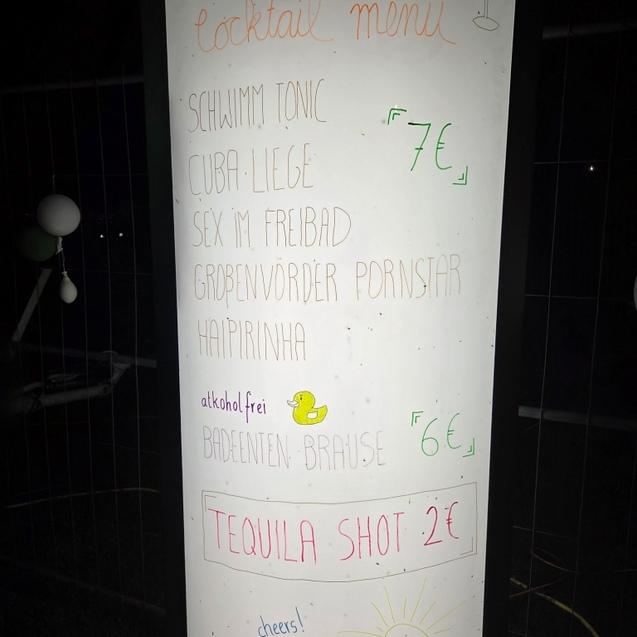 Cocktail menu
SCHWIMM TONIC
7€
CUBA LIEGE
SEX IM FREIBAD
GROßENVÖRDER PORNSTAR
HAIPIRINHA
alkoholfrei
BADEENTEN-BRAUSE
6€
TEQUILA SHOT 2€
cheers!